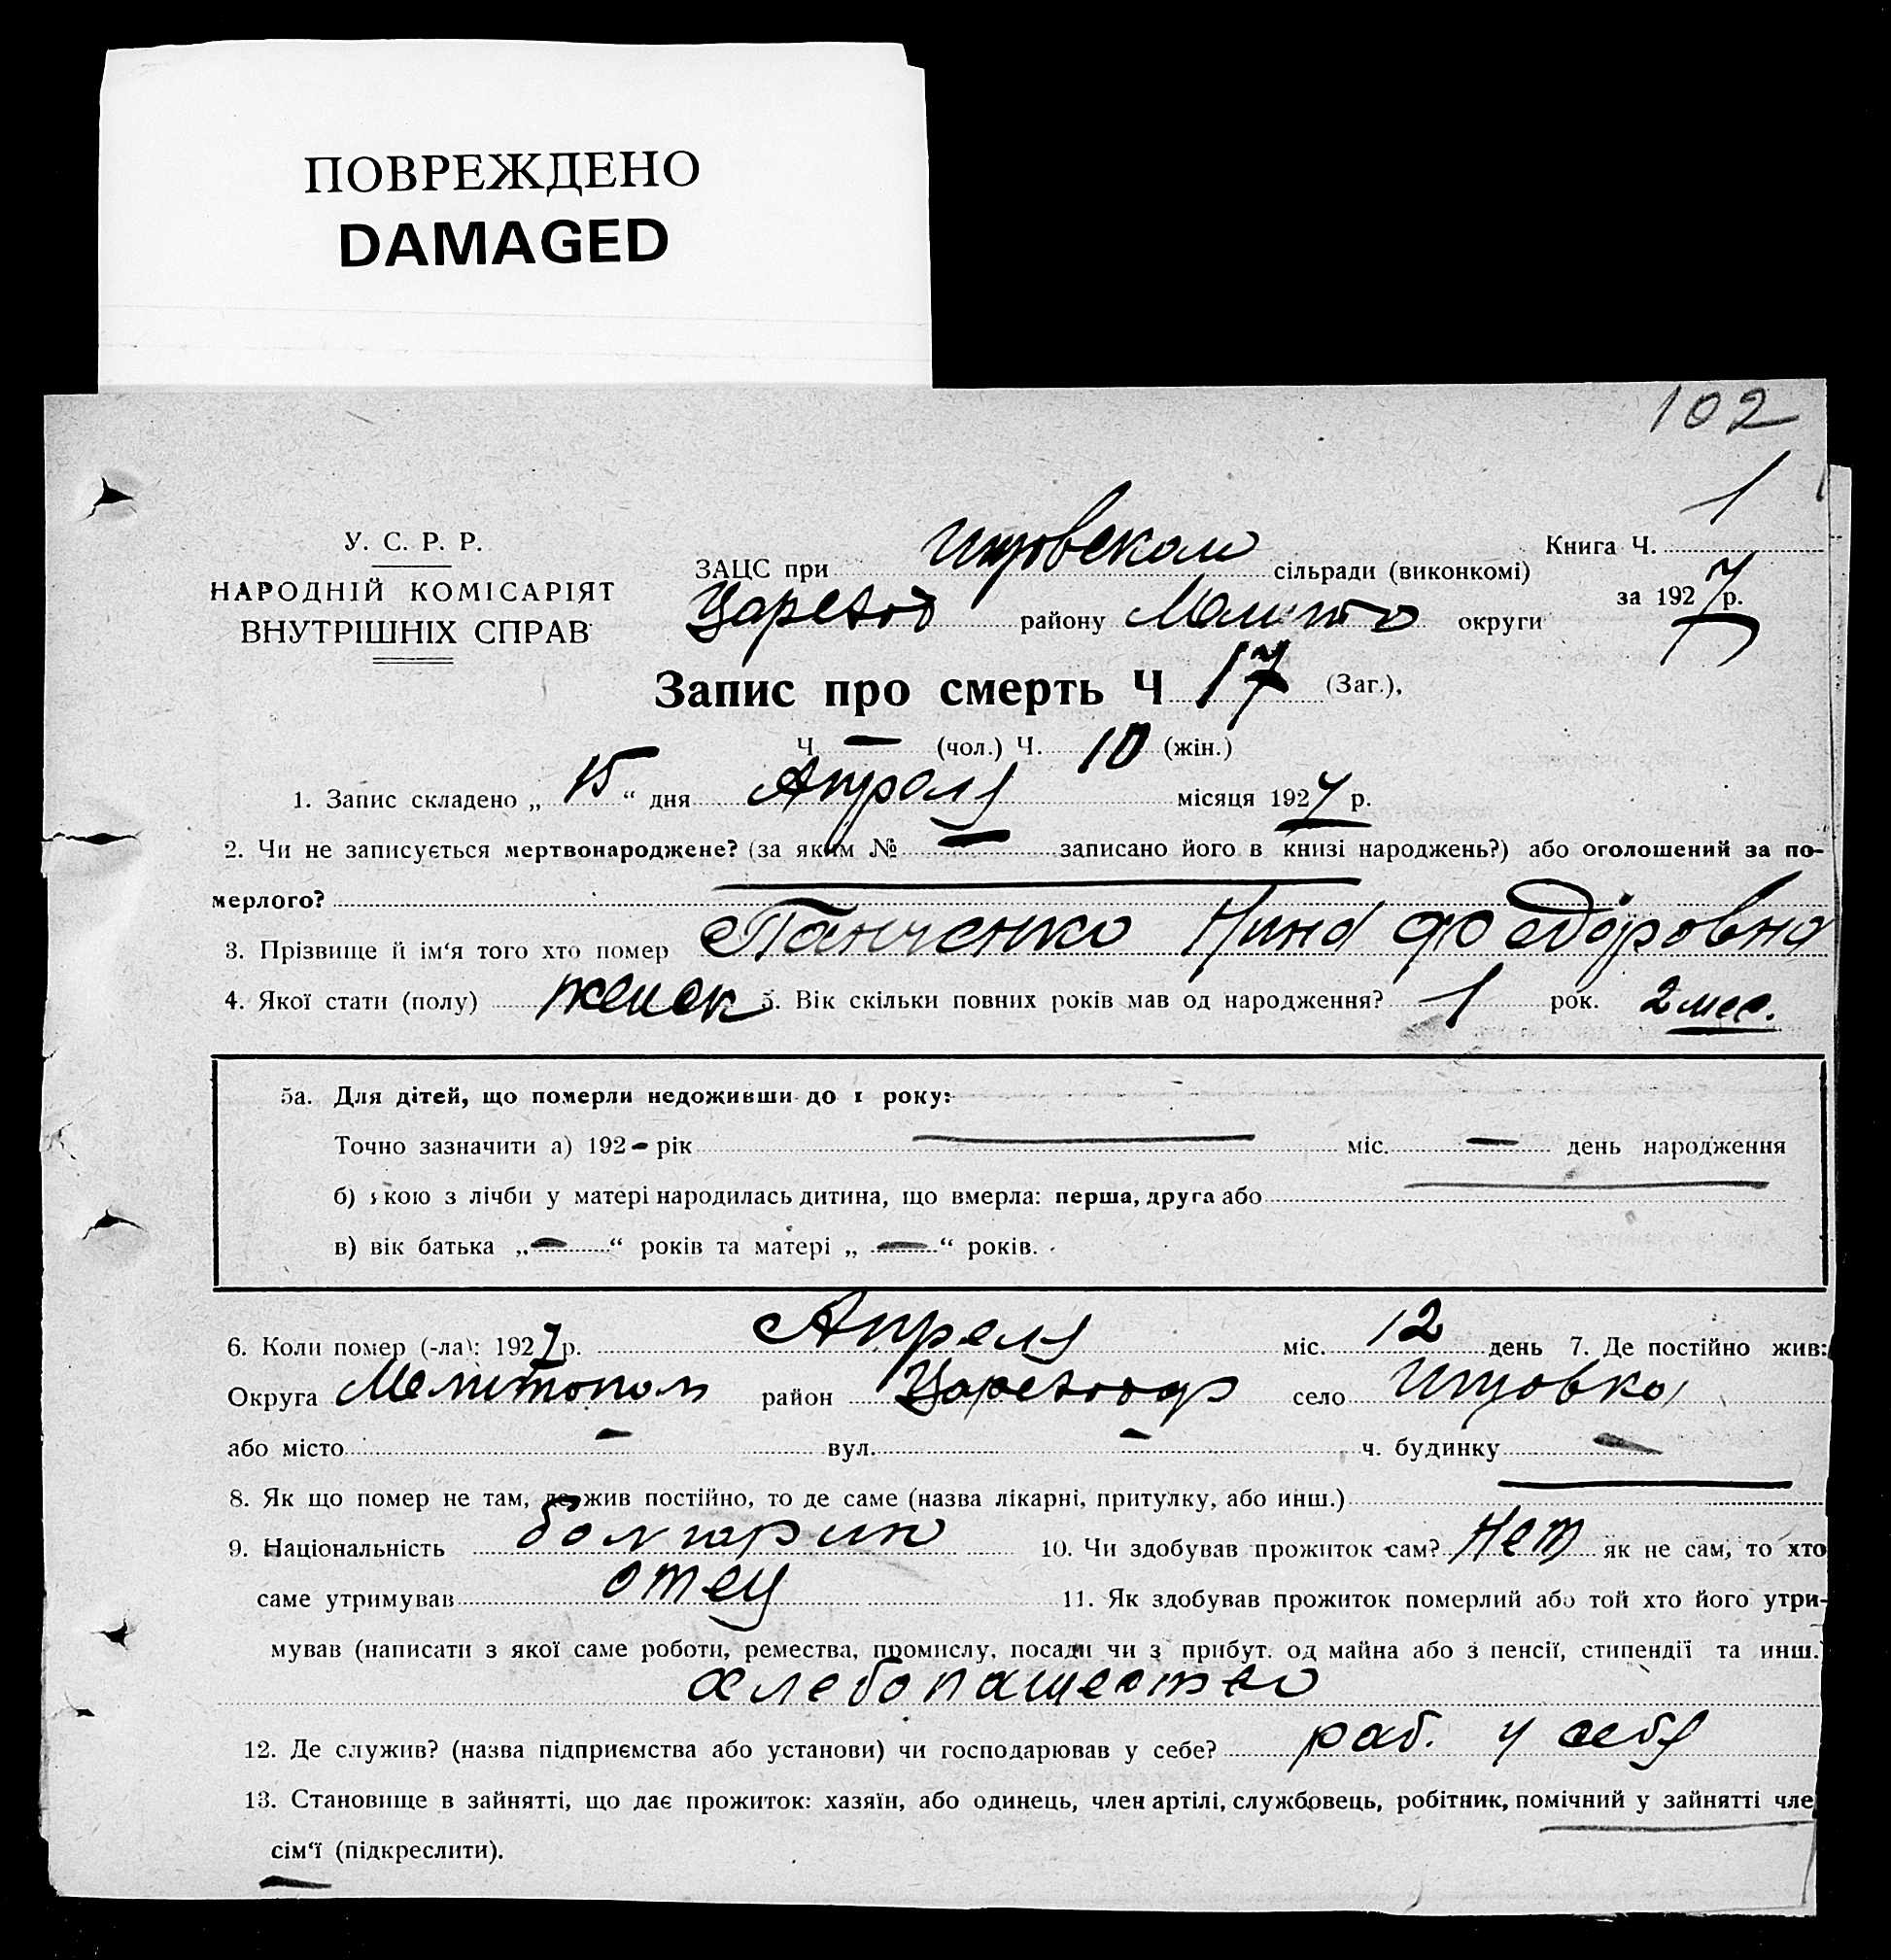 ПОВРЕЖДЕНО
DAMAGED
102
У. С. Р. Р.
НАРОДНІЙ КОМІСАРІЯТ
ВНУТРІШНІХ СПРАВ
Книга Ч. 1
за 1927 р.
ЗАЦС при сільради (виконкомі)
району округи
Запис про смерть Ч 17 (Заг.),
Ч — (чол.) Ч. 10 (жін.)
1. Запис складено „15“ дня Апреля місяця 1927 р.
2. Чи не записується мертвонароджене? (за яким № — записано його в книзі народжень?) або оголошений за по-
мерлого? —
3. Прізвище й ім‘я того хто помер Панченко Нина Федоровна
4. Якої стати (полу) женск 5. Вік скільки повних років мав од народження? 1 рок. 2 мес.
5а. Для дітей, що померли недоживши до 1 року:
Точно зазначити а) 192 – рік — міс. — день народження
б) якою з лічби у матері народилась дитина, що вмерла: перша, друга або —
в) вік батька „—“ років та матері „—“ років.
6. Коли помер (-ла): 1927 р. Апреля міс. 12 день 7. Де постійно жив:
Округа Мелитопол район село
або місто — вул. — ч. будинку —
8. Як що помер не там, де жив постійно, то де саме (назва лікарні, притулку, або инш.) —
9. Національність болгарин 10. Чи здобував прожиток сам? Нет як не сам, то хто
саме утримував отец 11. Як здобував прожиток померлий або той хто його утри-
мував (написати з якої саме роботи, ремества, промислу, посади чи з прибут. од майна або з пенсії, стипендії та инш.)
хлебопашество
12. Де служив? (назва підприємства або установи) чи господарював у себе? раб. у себя
13. Становище в зайнятті, що дає прожиток: хазяїн, або одинець, член артілі, службовець, робітник, помічний у зайнятті чле
сім‘ї (підкреслити).